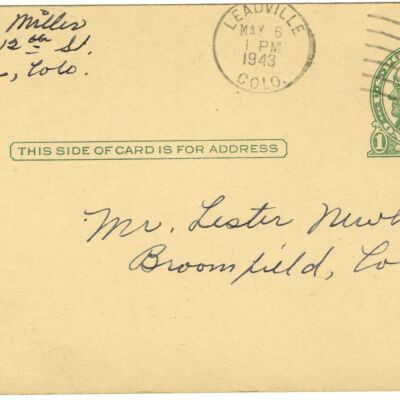 Miller
12th St.
, Colo.
LEADVILLE
MAY 6
1 PM
1943
COLO.
1
THIS SIDE OF CARD IS FOR ADDRESS
Mr. Lester
Broomfield, Co